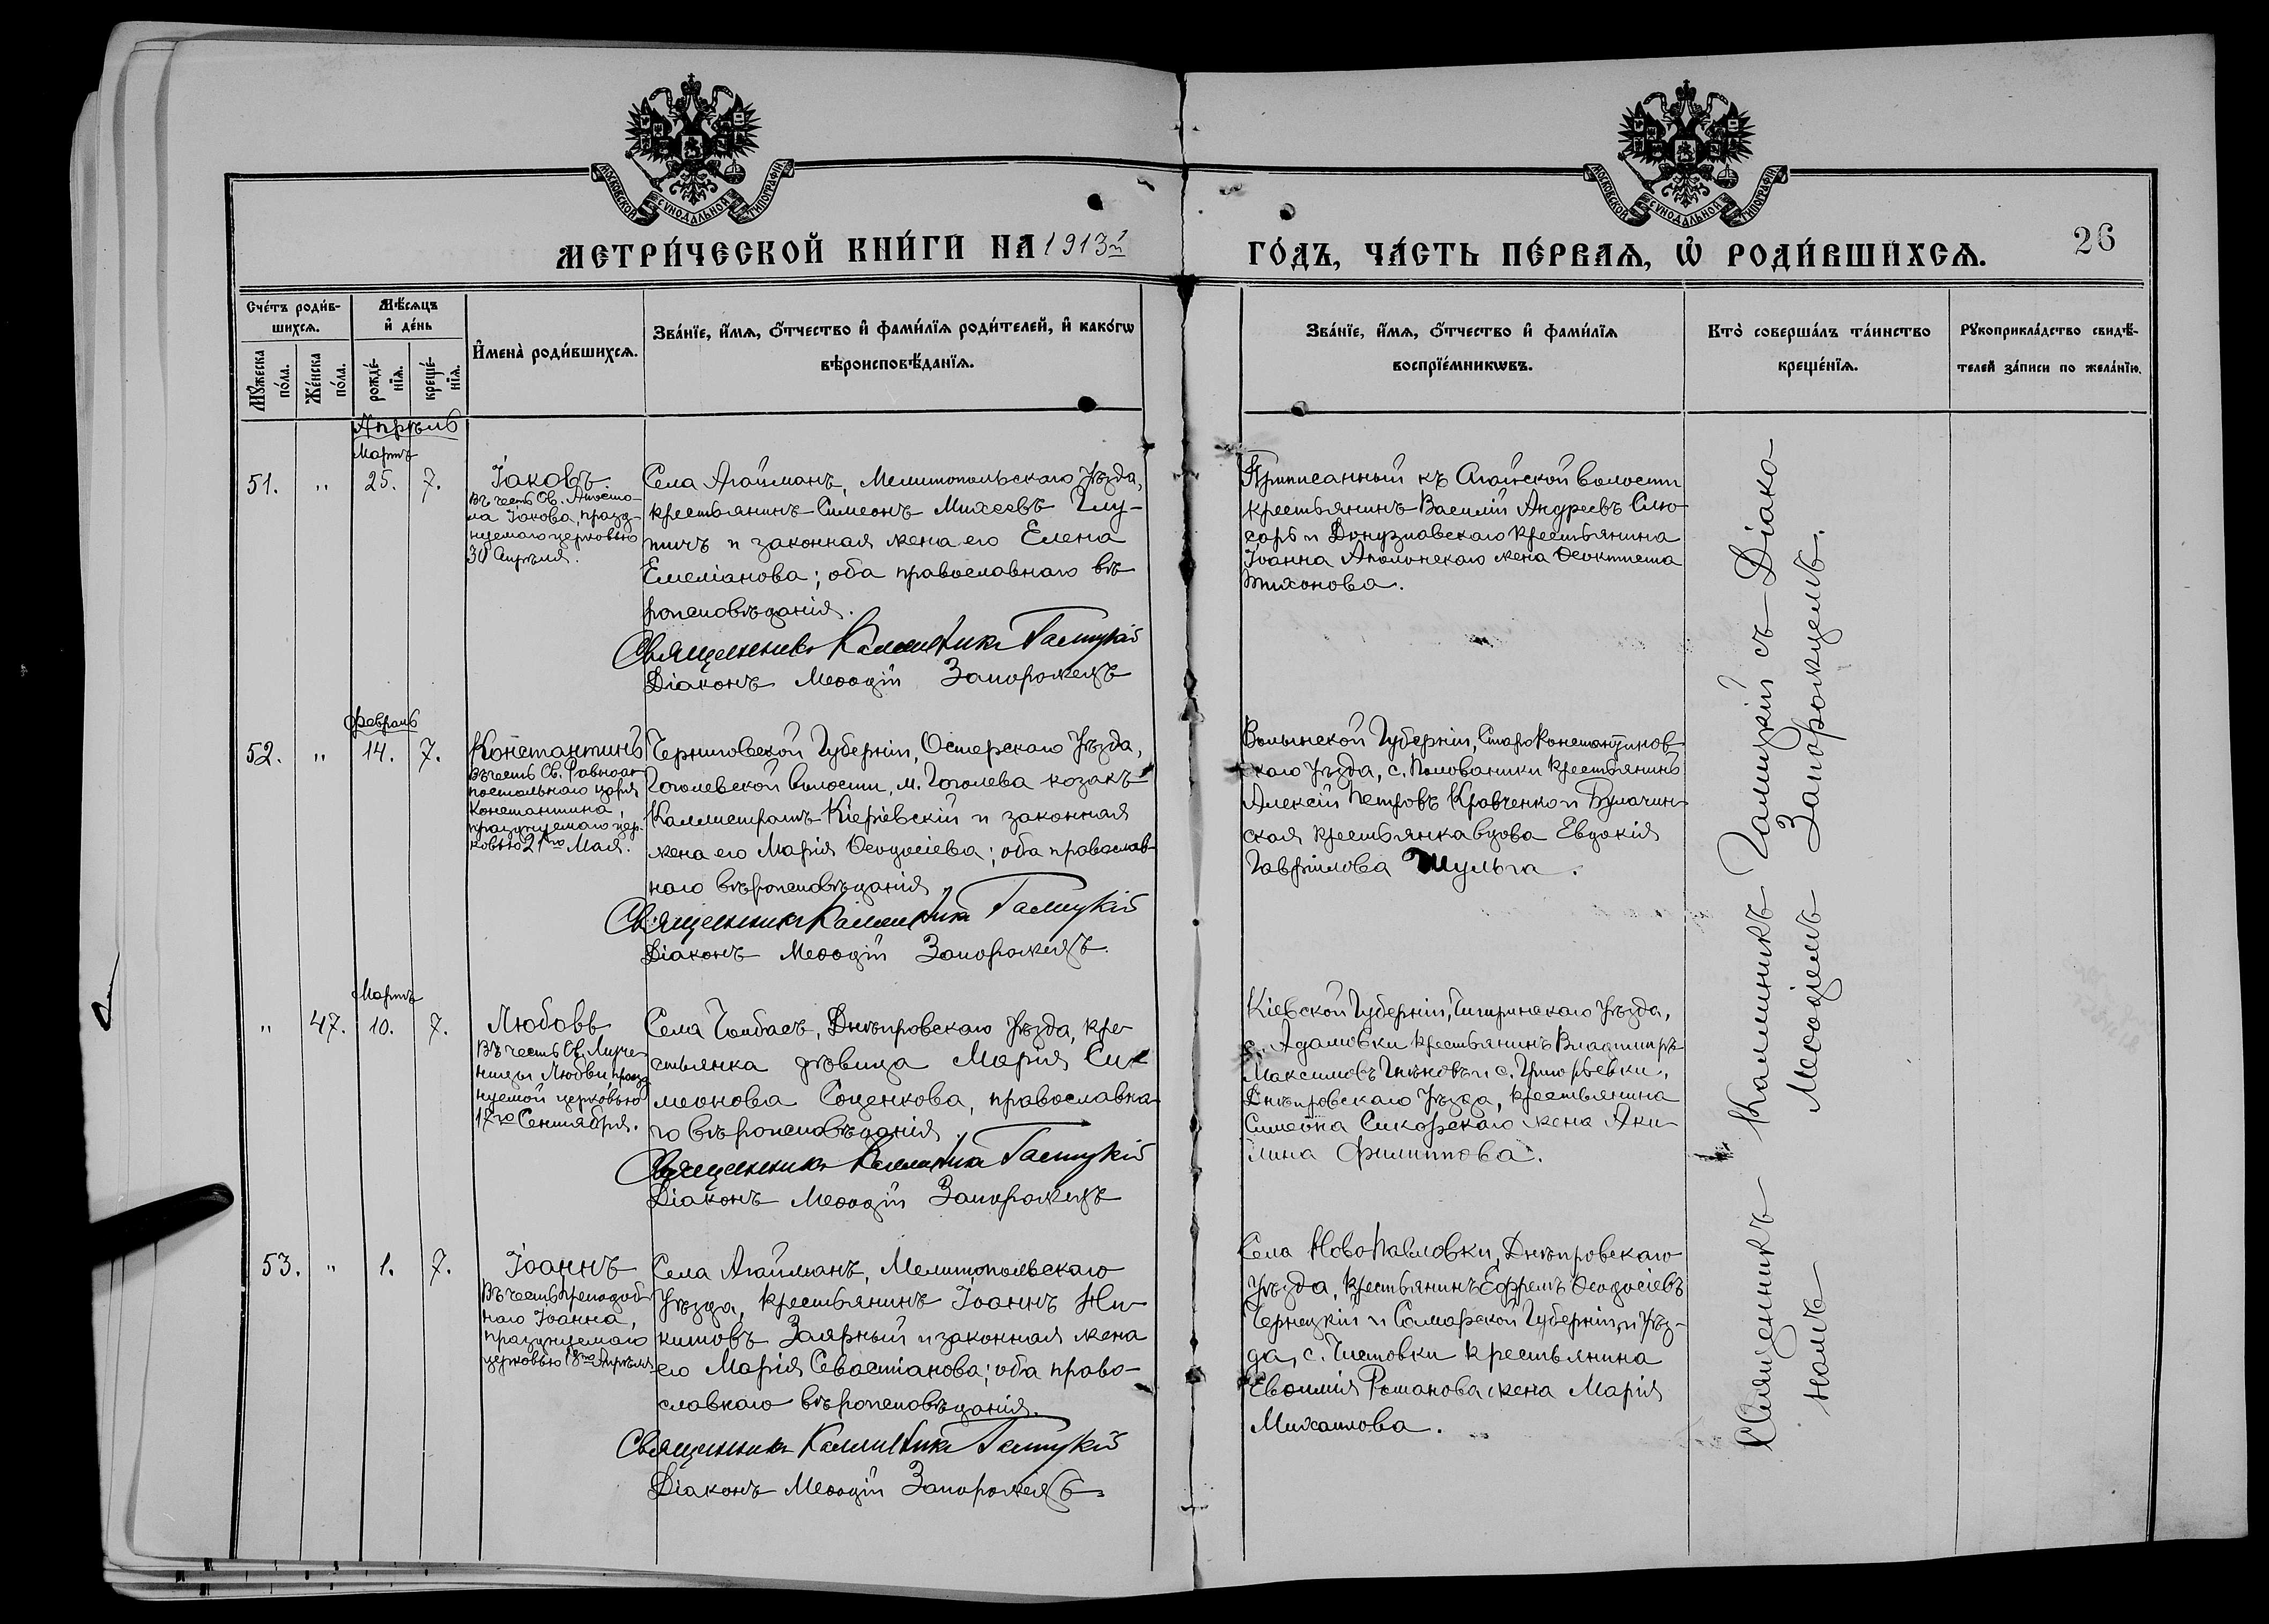 МОСКОВСКОЙ СѴНОДАЛЬНОЙ ТИПОГРАФІИ
МОСКОВСКОЙ СѴНОДАЛЬНОЙ ТИПОГРАФІИ
МЕТРИ́ЧЕСКОЙ КНИ́ГИ НА 1913й
ГО́ДЪ, ЧА́СТЬ ПЕ́РВАѦ, Ѡ҆ РОДИ́ВШИХСѦ.
26
Сче́тъ роди́в-
шихсѧ.
Мꙋ́жеска
по́ла.
Же́нска
по́ла.
Мѣ́сѧцъ
и҆ де́нь
рожде́-
нїѧ.
креще́-
нїѧ.
И҆мена̀ роди́вшихсѧ.
Зва́нїе, и҆́мѧ, ѻ҆́тчество и҆ фами́лїѧ роди́телей, и҆ како́гѡ
вѣроисповѣ́данїѧ.
Зва́нїе, и҆́мѧ, ѻ҆́тчество и҆ фами́лїѧ
воспрїе́мникѡвъ.
Кто̀ соверша́лъ та́инство
креще́нїѧ.
Рꙋкоприкла́дство свидѣ́-
телей за́писи по жела́нїю.
Апрѣль
Мартъ
51. " 25. 7.
Іаковъ
Въ честь Св. Апосто-
ла Іакова, празд-
нуемаго церковью
30 Апрѣля.
Села Агайманъ, Мелитопольскаго Уѣзда,
крестьянинъ Симеонъ Михеевъ Глу-
пичъ и законная жена его Елена
Емеліанова; оба православнаго вѣ-
роисповѣданія.
Священникъ Каллиникъ Галицкій
Діаконъ Меѳодій Запорожецъ
Приписанный къ Агайской волости
крестьянинъ Василій Андреевъ Слю-
сарь и Донузлавскаго крестьянина
Іоанна Аполонскаго жена Ѳеоктиста
Тихонова.
Февраль
52. " 14. 7.
Константинъ
Въ честь Св. Равноап-
постольнаго царя
Константина,
празднуемаго цер-
ковью 21го Мая.
Черниговской Губерніи, Остерскаго Уѣзда,
Гоголевской волости, м. Гоголева козакъ
Каллистратъ Кіеріевскій и законная
жена его Марія Ѳеодосіева; оба православ-
наго вѣроисповѣданія
Священникъ Каллиникъ Галицкій
Діаконъ Меѳодій Запорожецъ.
Волынской Губерніи, Староконстантинов-
скаго Уѣзда, с. Половинники крестьянинъ
Алексій Петровъ Кравченко и
крестьянка вдова Евдокія
Гавріилова Шульга.
Мартъ
" 47. 10. 7.
Любовь
Въ честь Св. Муче-
ницы Любви празд
нуемой церковью
17го Сентября.
Села Чолбасъ, Днѣпровскаго Уѣзда, кре-
стьянка дѣвица Марія Си-
меонова Соценкова, православна-
го вѣроисповѣданія.
Священникъ Каллиникъ Галицкій
Діаконъ Меѳодій Запорожецъ
Кіевской Губерніи, Чигиринскаго Уѣзда,
с. Адамовки крестьянинъ Владиміръ
Максимовъ и с. Григорьевки,
Днѣпровскаго Уѣзда, крестьянина
Симеона Сикорскаго жена Аки-
лина Филиппова.
53. " 1. 7.
Іоаннъ
Въ честь преподоб-
наго Іоанна,
празднуемаго
церковью 18го Апрѣля
Села Агайманъ, Мелитопольскаго
Уѣзда, крестьянинъ Іоаннъ Ни-
китовъ Заярный и законная жена
его Марія Севастіанова; оба право-
славнаго вѣроисповѣданія.
Священникъ Каллиникъ Галицкій
Діаконъ Меѳодій Запорожецъ.
Села НовоПавловки, Днѣпровскаго
Уѣзда, крестьянинъ Ефремъ Ѳеодосіевъ
Чернецкій и Самарской Губерніи, и Уѣз-
да, с. Чистовки крестьянина
Евѳимія Романова жена Марія
Михаилова.
Священникъ Каллиникъ Галицкій съ Діако-
номъ Меѳодіемъ Запорожцемъ.